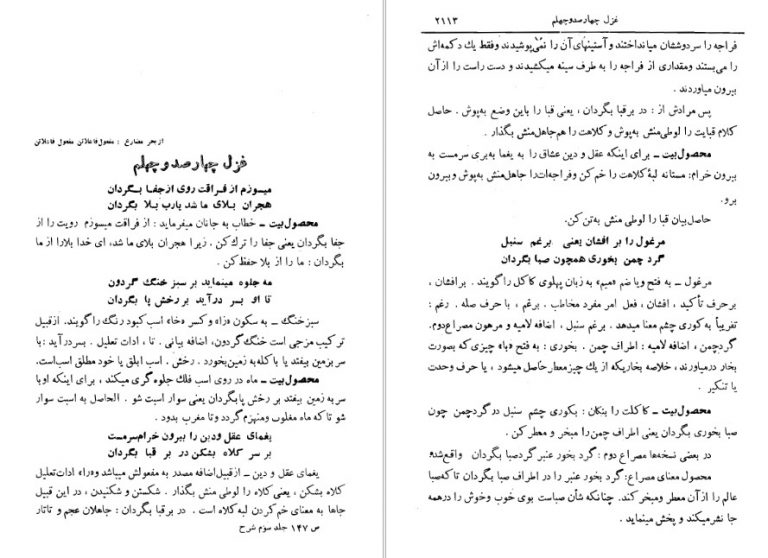 از بحر مضارع : مفعول فاعلاتن مفعول فاعلاتن
غزل چهارصدوچهلم
میسوزم از فراقت روی ازجفا بگردان
هجران بلای ما شد یارب بلا بگردان
محصول‌بیت ـ خطاب به جانان میفرماید : از فراقت میسوزم رویت را از
جفا بگردان یعنی جفا را ترك‌کن . زیرا هجران بلای ما شد، ای خدا بلارا از ما
بگردان : ما را از بلا حفظ‌کن .
مه جلوه مینماید بر سبز خنگ گردون
تا او بسر درآید بر رخش پا بگردان
سبزخنگ ـ به سکون «زا» و کسر «خا» اسب کبود رنگ را گویند. ازقبیل
ترکیب مزجی است خنگ گردون، اضافه بیانی . تا ، ادات تعلیل . بسردرآید : با
سر بزمین بیفتد یا باکله به زمین‌بخورد . رخش . اسب ابلق یا خود مطلق اسب‌است.
محصول‌بیت ـ ماه در روی اسب فلك جلوه‌گری میکند ، برای اینکه اوبا
سر بزمین بیفتد بر رخش پابگردان یعنی سوار اسبت شو . الحاصل به اسبت سوار
شو تاکه ماه مغلوب ومنهزم گردد وتا مغرب بدود .
یغمای عقل و‌دین را بیرون خرام‌سرمست
بر سر کلاه بشکن در بر قبا بگردان
یغمای عقل و دین ـ ازقبیل‌اضافه مصدر به مفعولش میباشد «را» ادات‌تعلیل
کلاه بشکن ، یعنی کلاه را لوطی منش بگذار . شکستن و شکنیدن ، در این قبیل
جاها به معنای خم‌کردن لبه کلاه است . در برقبا بگردان : جاهلان عجم و تاتار
ص ۱۴۷ جلد سوم شرح
غزل چهارصدوچهلم ۲۱۱۳
فراجه را سردوششان میانداختند و آستینهای آن را نمی‌پوشیدند وفقط یك دکمه‌اش
را می‌بستند ومقداری از فراجه را به طرف سینه میکشیدند و دست راست را از آن
بیرون میاوردند .
پس مرادش از : در برقبا بگردان ، یعنی قبا را باین وضع به‌پوش . حاصل
کلام قبایت را لوطی‌منش به‌پوش و کلاهت را هم‌جاهل‌منش بگذار .
محصول‌بیت ـ برای اینکه عقل و دین عشاق را به یغما به‌بری سرمست به
بیرون خرام: مستانه لبهٔ کلاهت را خم‌کن و فراجه‌ات‌را جاهل‌منش به‌پوش و بیرون
برو.
حاصل‌بیان قبا را لوطی منش به‌تن‌کن.
مرغول را بر افشان یعنی برغم سنبل
گرد چمن بخوری همچون صبا بگردان
مرغول ـ به فتح ویا ضم «میم» به زبان پهلوی کاکل را گویند . برافشان ،
برحرف تأکید ، افشان ، فعل امر مفرد مخاطب . برغم ، با حرف صله . رغم :
تقریباً به‌کوری چشم معنا میدهد . برغم سنبل ، اضافه لامیه و مرهون مصراع‌دوم.
گردچمن ، اضافه لامیه : اطراف چمن . بخوری : به فتح «با» چیزی که بصورت
بخار درمیاورند، خلاصه بخاریکه از یك چیزمعطرحاصل میشود ، یا حرف وحدت
یا تنکیر .
محصول‌بیت ـ کاکلت را بتکان : بکوری چشم سنبل در گردچمن چون
صبا بخوری بگردان یعنی اطراف چمن‌را مبخر و معطر کن.
در بعضی نسخه‌ها مصراع دوم : گرد بخور عنبر گردصبا بگردان واقع‌شده
محصول معنای مصراع: گرد بخور عنبر را در اطراف صبا بگردان تاکه‌صبا
عالم را از آن معطر ومبخرکند. چنانکه شأن صباست بوی خوب وخوش را درهمه
جا نشر‌میکند و پخش مینماید .